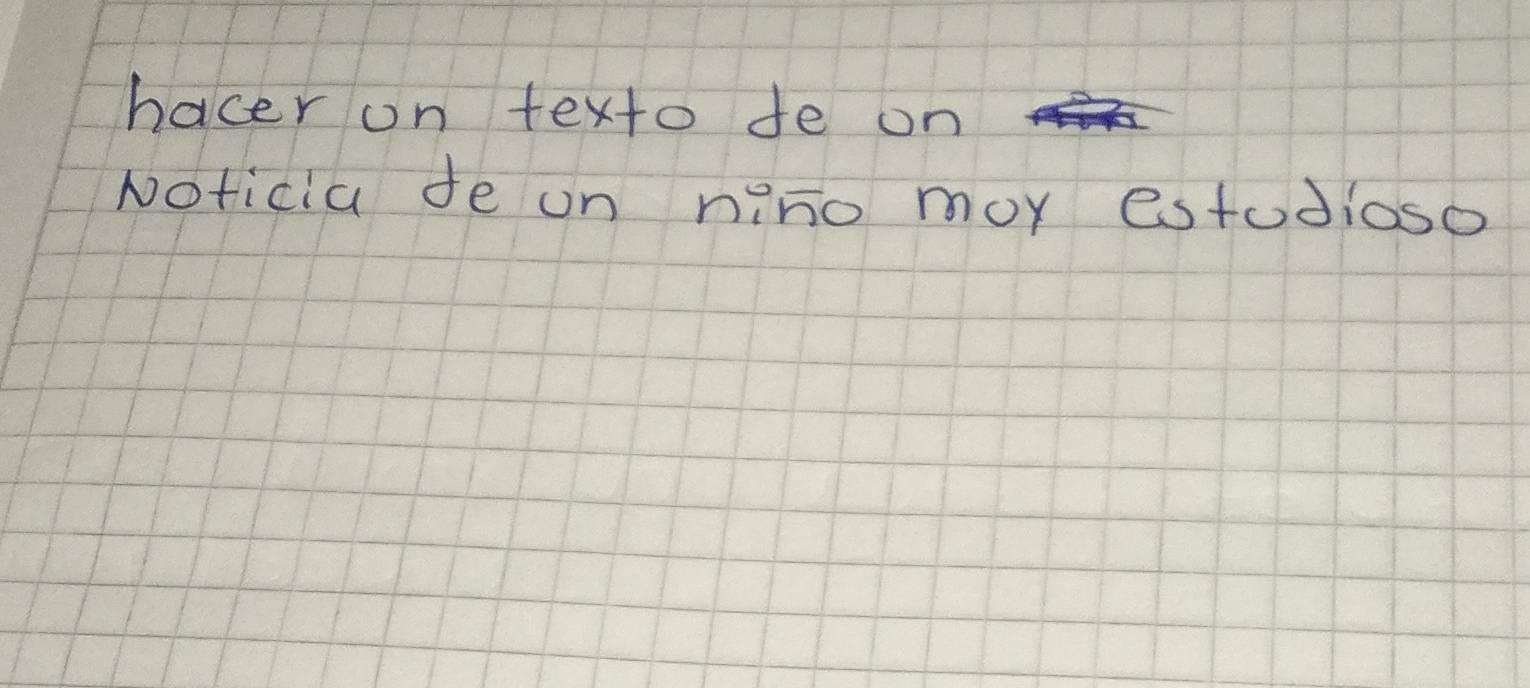 hacer un texto de un
Noticia de un niño muy estudioso